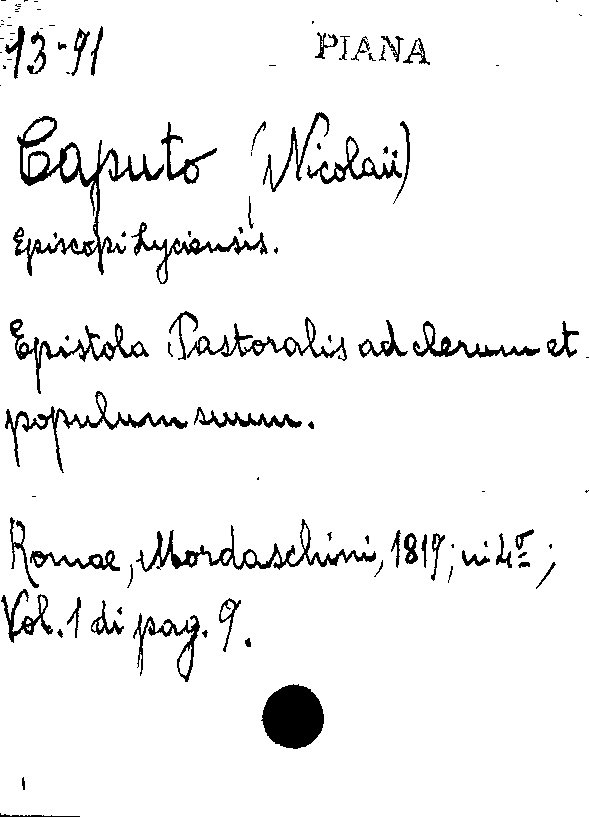 13-91 PIANA
Caputo (Nicolaii)
Episcopi Lyciensis.
Epistola Pastoralis ad clerum et
populum suum.
Romae, Mordaschini, 1819; in 4º;
Vol. 1 di pag. 9.